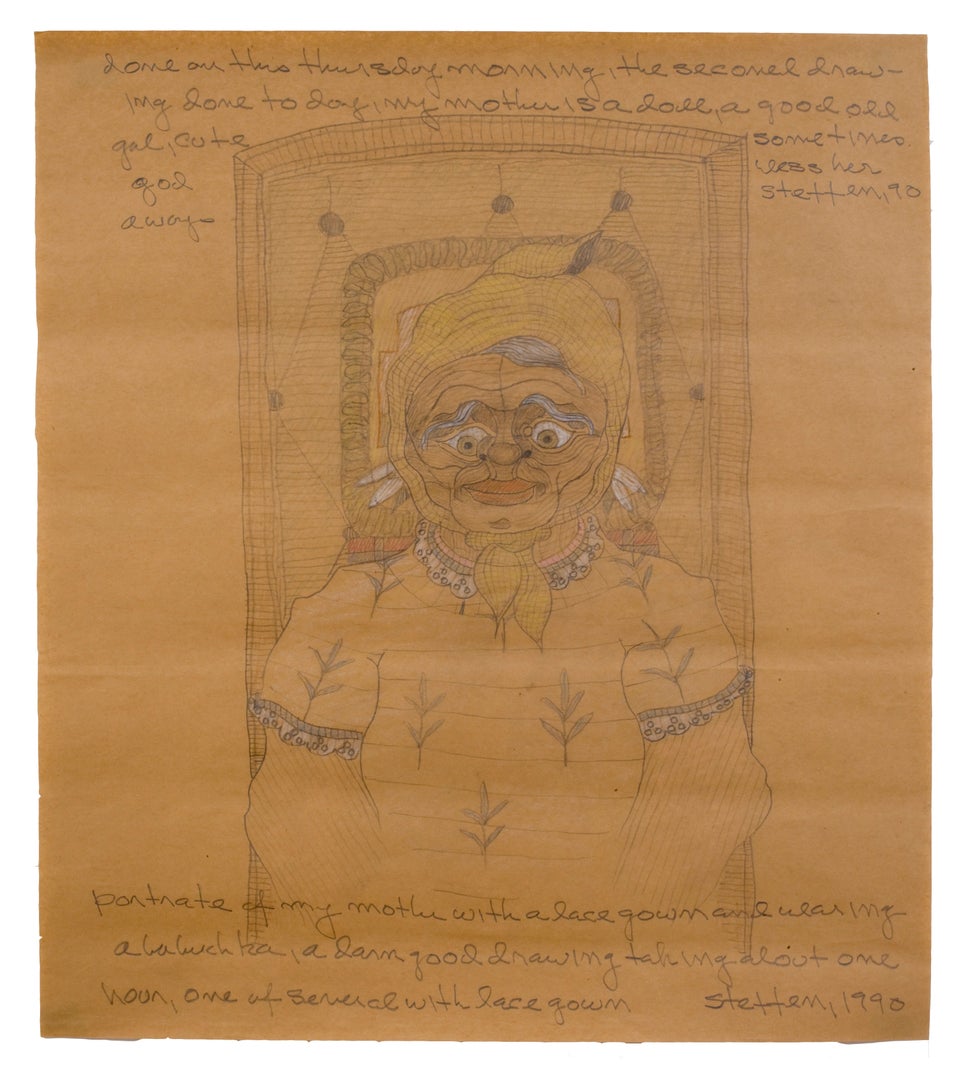 done on this thursday morning, the second draw-
ing done to day, my mother is a doll, a good old
gal, cute sometimes.
god bless her
aways steffen, 90
portrate of my mother with a lace gown and wearing
a babuchka, a good drawing taking about one
hour, one of several with lace gown steffen, 1990